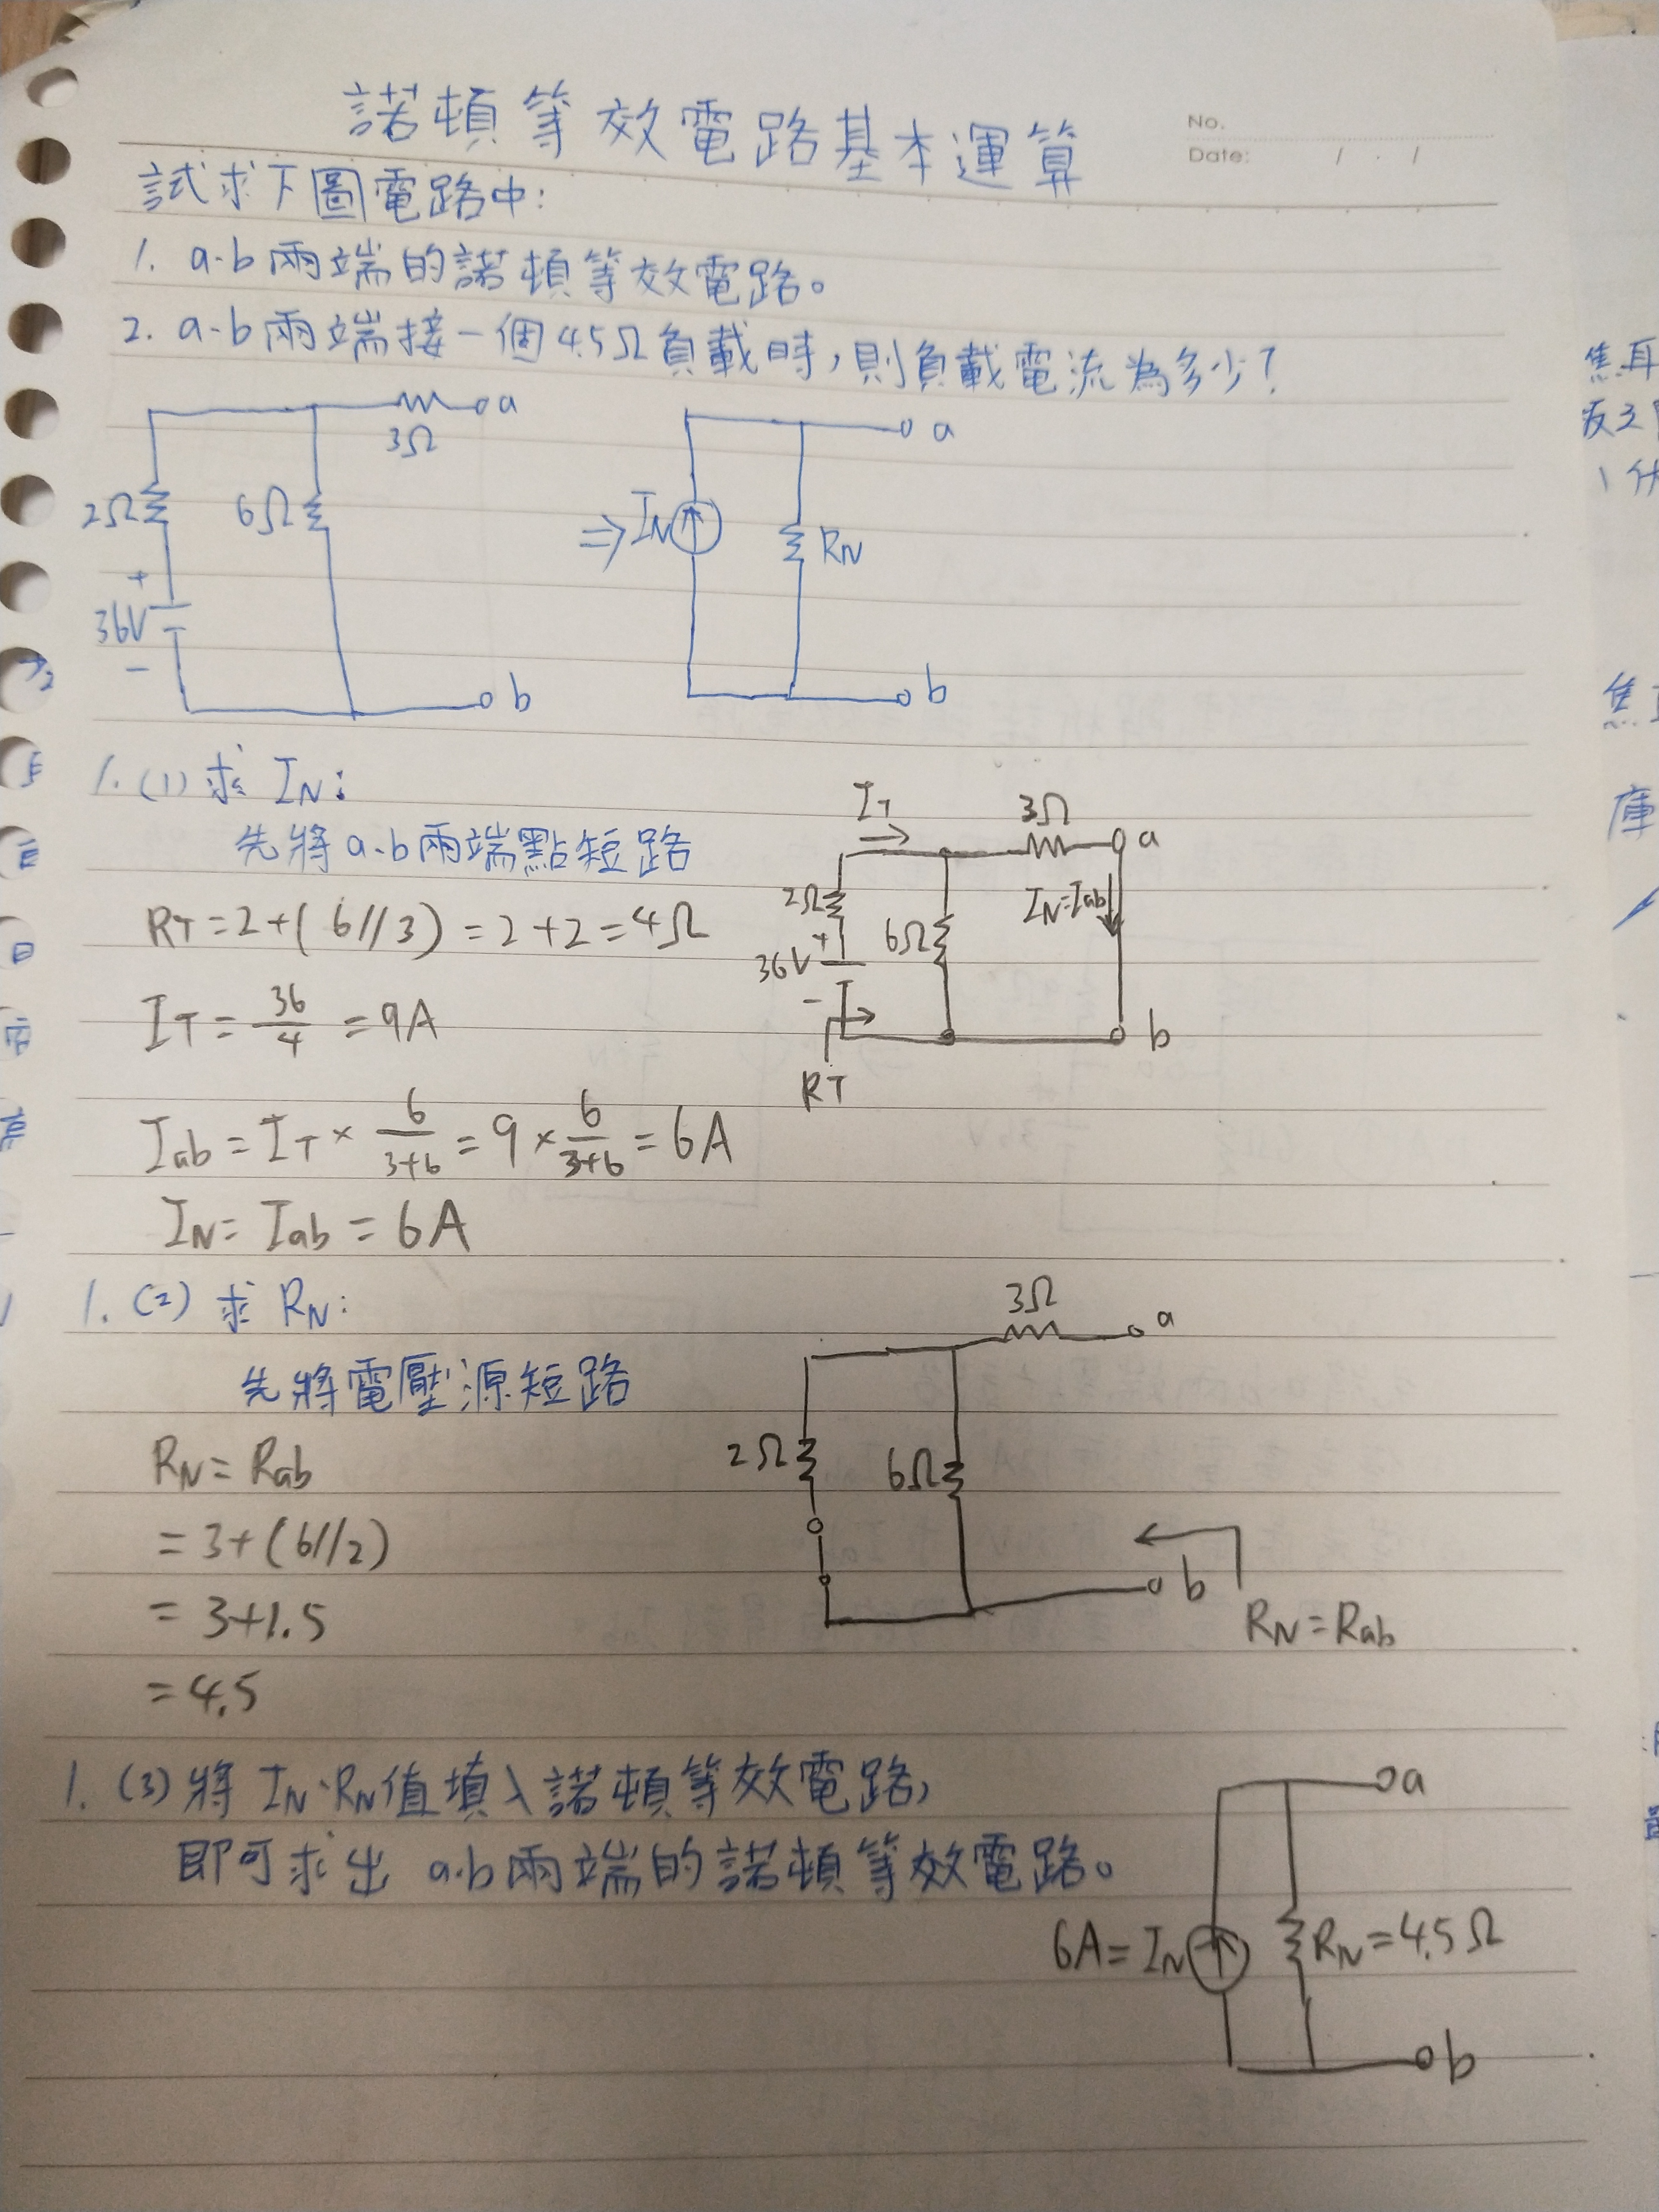 諾頓等效電路基本運算
No.
Date: / . /
試求下圖電路中:
1. a.b兩端的諾頓等效電路。
2. a.b兩端接一個4.5Ω負載時,則負載電流為多少?
a
3Ω
2Ω
6Ω
+
36V
-
b
⇒
IN
RN
a
b
1.(1) 求 IN:
先將a.b兩端點短路
RT=2+(6//3)=2+2=4Ω
IT=36/4=9A
Iab=IT×6/(3+6)=9×6/(3+6)=6A
IN=Iab=6A
IT
3Ω
a
2Ω
IN=Iab
+
36V
6Ω
-
b
RT
1.(2) 求 RN:
先將電壓源短路
RN=Rab
=3+(6//2)
=3+1.5
=4.5
3Ω
a
2Ω
6Ω
b
RN=Rab
1.(3)將 IN、RN值填入諾頓等效電路,
即可求出 a.b兩端的諾頓等效電路。
a
6A=IN
RN=4.5Ω
b
焦耳
焦
庫